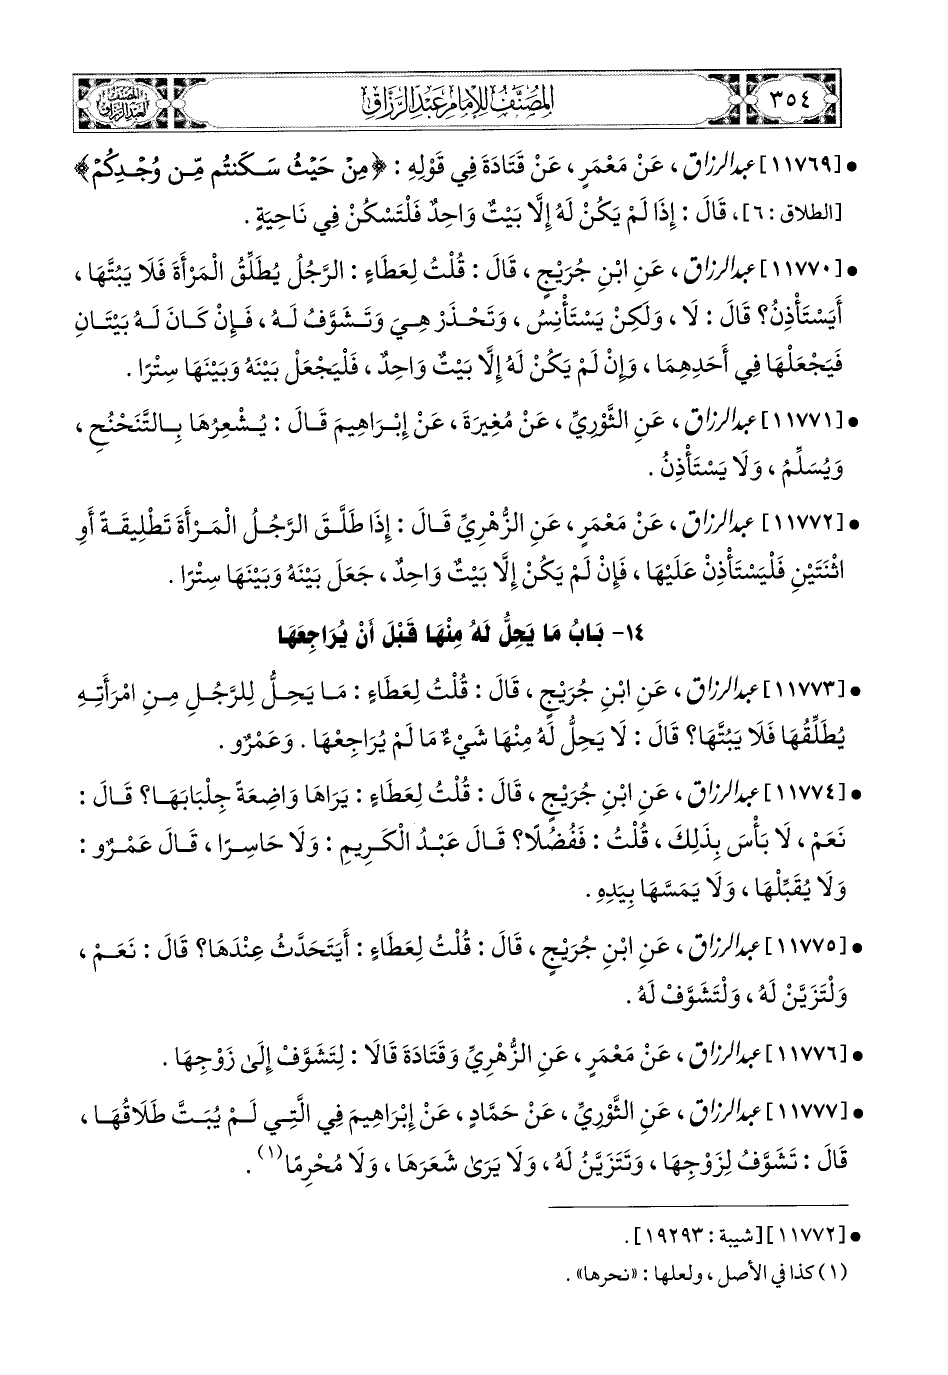 ٣٥٤
المصنف للإمام عبد الرزاق
المصنف
لعبد الرزاق
• [١١٧٦٩] عبد الرزاق، عَنْ مَعْمَرٍ، عَنْ قَتَادَةَ فِي قَوْلِهِ : ﴿مِنْ حَيْثُ سَكَنتُم مِّن وُجْدِكُمْ﴾
[الطلاق : ٦]، قَالَ : إِذَا لَمْ يَكُنْ لَهُ إِلَّا بَيْتٌ وَاحِدٌ فَلْتَسْكُنْ فِي نَاحِيَةٍ .
• [١١٧٧٠] عبد الرزاق، عَنِ ابْنِ جُرَيْجٍ، قَالَ : قُلْتُ لِعَطَاءٍ : الرَّجُلُ يُطَلِّقُ الْمَرْأَةَ فَلَا يَبُتُّهَا،
أَيَسْتَأْذِنُ؟ قَالَ : لَا، وَلَكِنْ يَسْتَأْنِسُ، وَتَحْذَرُ هِيَ وَتَشَوَّفُ لَهُ، فَإِنْ كَانَ لَهُ بَيْتَانِ
فَيَجْعَلْهَا فِي أَحَدِهِمَا، وَإِنْ لَمْ يَكُنْ لَهُ إِلَّا بَيْتٌ وَاحِدٌ، فَلْيَجْعَلْ بَيْنَهُ وَبَيْنَهَا سِتْرًا .
• [١١٧٧١] عبد الرزاق، عَنِ الثَّوْرِيِّ، عَنْ مُغِيرَةَ، عَنْ إِبْرَاهِيمَ قَالَ : يُشْعِرُهَا بِالتَّنَحْنُحِ،
وَيُسَلِّمُ، وَلَا يَسْتَأْذِنُ .
• [١١٧٧٢] عبد الرزاق، عَنْ مَعْمَرٍ، عَنِ الزُّهْرِيِّ قَالَ : إِذَا طَلَّقَ الرَّجُلُ الْمَرْأَةَ تَطْلِيقَةً أَوِ
اثْنَتَيْنِ فَلْيَسْتَأْذِنْ عَلَيْهَا، فَإِنْ لَمْ يَكُنْ إِلَّا بَيْتٌ وَاحِدٌ، جَعَلَ بَيْنَهُ وَبَيْنَهَا سِتْرًا .
١٤- بَابُ مَا يَحِلُّ لَهُ مِنْهَا قَبْلَ أَنْ يُرَاجِعَهَا
• [١١٧٧٣] عبد الرزاق، عَنِ ابْنِ جُرَيْجٍ، قَالَ : قُلْتُ لِعَطَاءٍ : مَا يَحِلُّ لِلرَّجُلِ مِنِ امْرَأَتِهِ
يُطَلِّقُهَا فَلَا يَبُتُّهَا؟ قَالَ : لَا يَحِلُّ لَهُ مِنْهَا شَيْءٌ مَا لَمْ يُرَاجِعْهَا . وَعَمْرٌو .
• [١١٧٧٤] عبد الرزاق، عَنِ ابْنِ جُرَيْجٍ، قَالَ : قُلْتُ لِعَطَاءٍ : يَرَاهَا وَاضِعَةً جِلْبَابَهَا؟ قَالَ :
نَعَمْ، لَا بَأْسَ بِذَلِكَ، قُلْتُ : فَفُضُلًا؟ قَالَ عَبْدُ الْكَرِيمِ : وَلَا حَاسِرًا، قَالَ عَمْرٌو :
وَلَا يُقَبِّلْهَا، وَلَا يَمَسَّهَا بِيَدِهِ .
• [١١٧٧٥] عبد الرزاق، عَنِ ابْنِ جُرَيْجٍ، قَالَ : قُلْتُ لِعَطَاءٍ : أَيَتَحَدَّثُ عِنْدَهَا؟ قَالَ : نَعَمْ،
وَلْتَزَيَّنْ لَهُ، وَلْتَشَوَّفْ لَهُ .
• [١١٧٧٦] عبد الرزاق، عَنْ مَعْمَرٍ، عَنِ الزُّهْرِيِّ وَقَتَادَةَ قَالَا : لِتَشَوَّفْ إِلَىٰ زَوْجِهَا .
• [١١٧٧٧] عبد الرزاق، عَنِ الثَّوْرِيِّ، عَنْ حَمَّادٍ، عَنْ إِبْرَاهِيمَ فِي الَّتِي لَمْ يُبَتَّ طَلَاقُهَا،
قَالَ : تَشَوَّفُ لِزَوْجِهَا، وَتَتَزَيَّنُ لَهُ، وَلَا يَرَىٰ شَعَرَهَا، وَلَا مُحْرِمًا(١) .
• [١١٧٧٢] [شيبة : ١٩٢٩٣] .
(١) كذا في الأصل، ولعلها : «نحرها» .